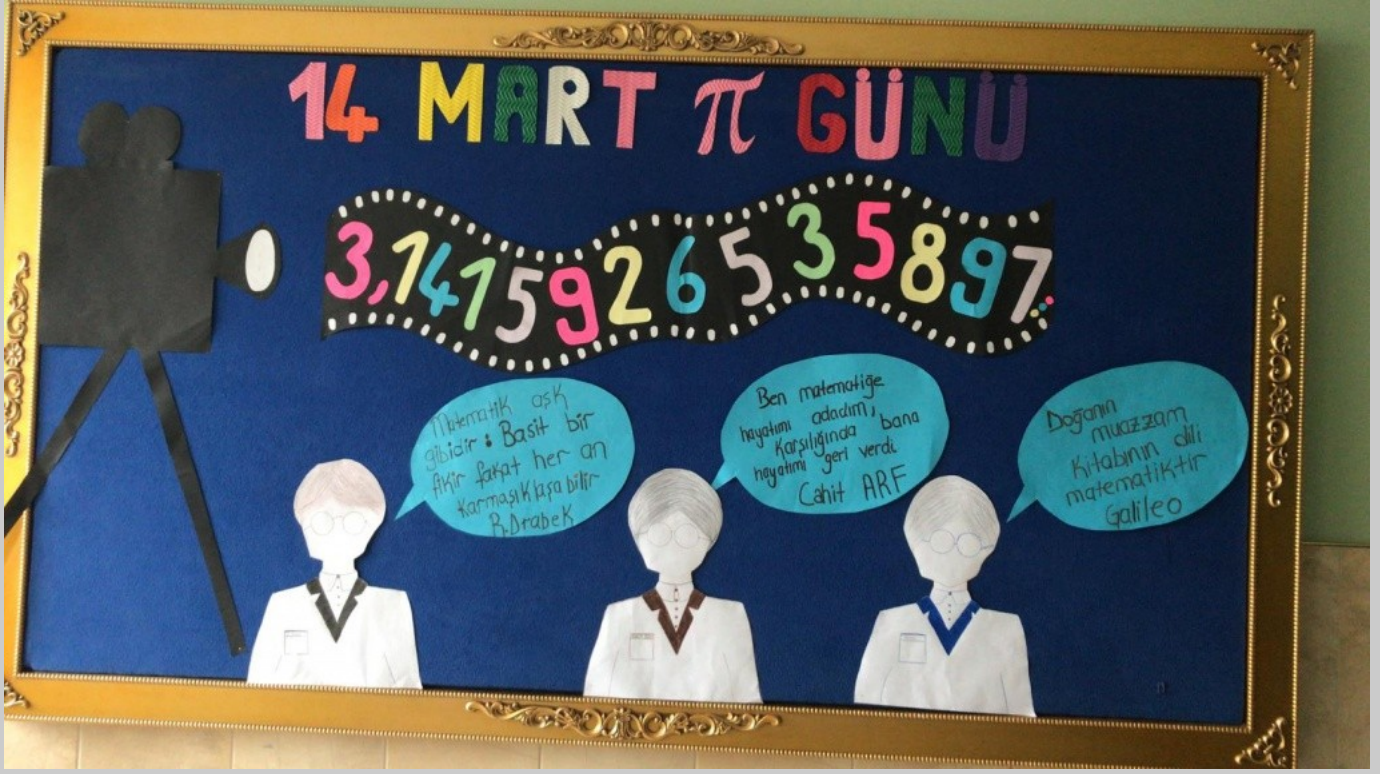 14 MART π GÜNÜ
3,1415926535897...
Matematik aşk
gibidir : Basit bir
fikir fakat her an
karmaşıklaşabilir
R.Drabek
Ben matematiğe
hayatımı adadım,
karşılığında bana
hayatımı geri verdi
Cahit ARF
Doğanın
muazzam
kitabının dili
matematiktir
Galileo